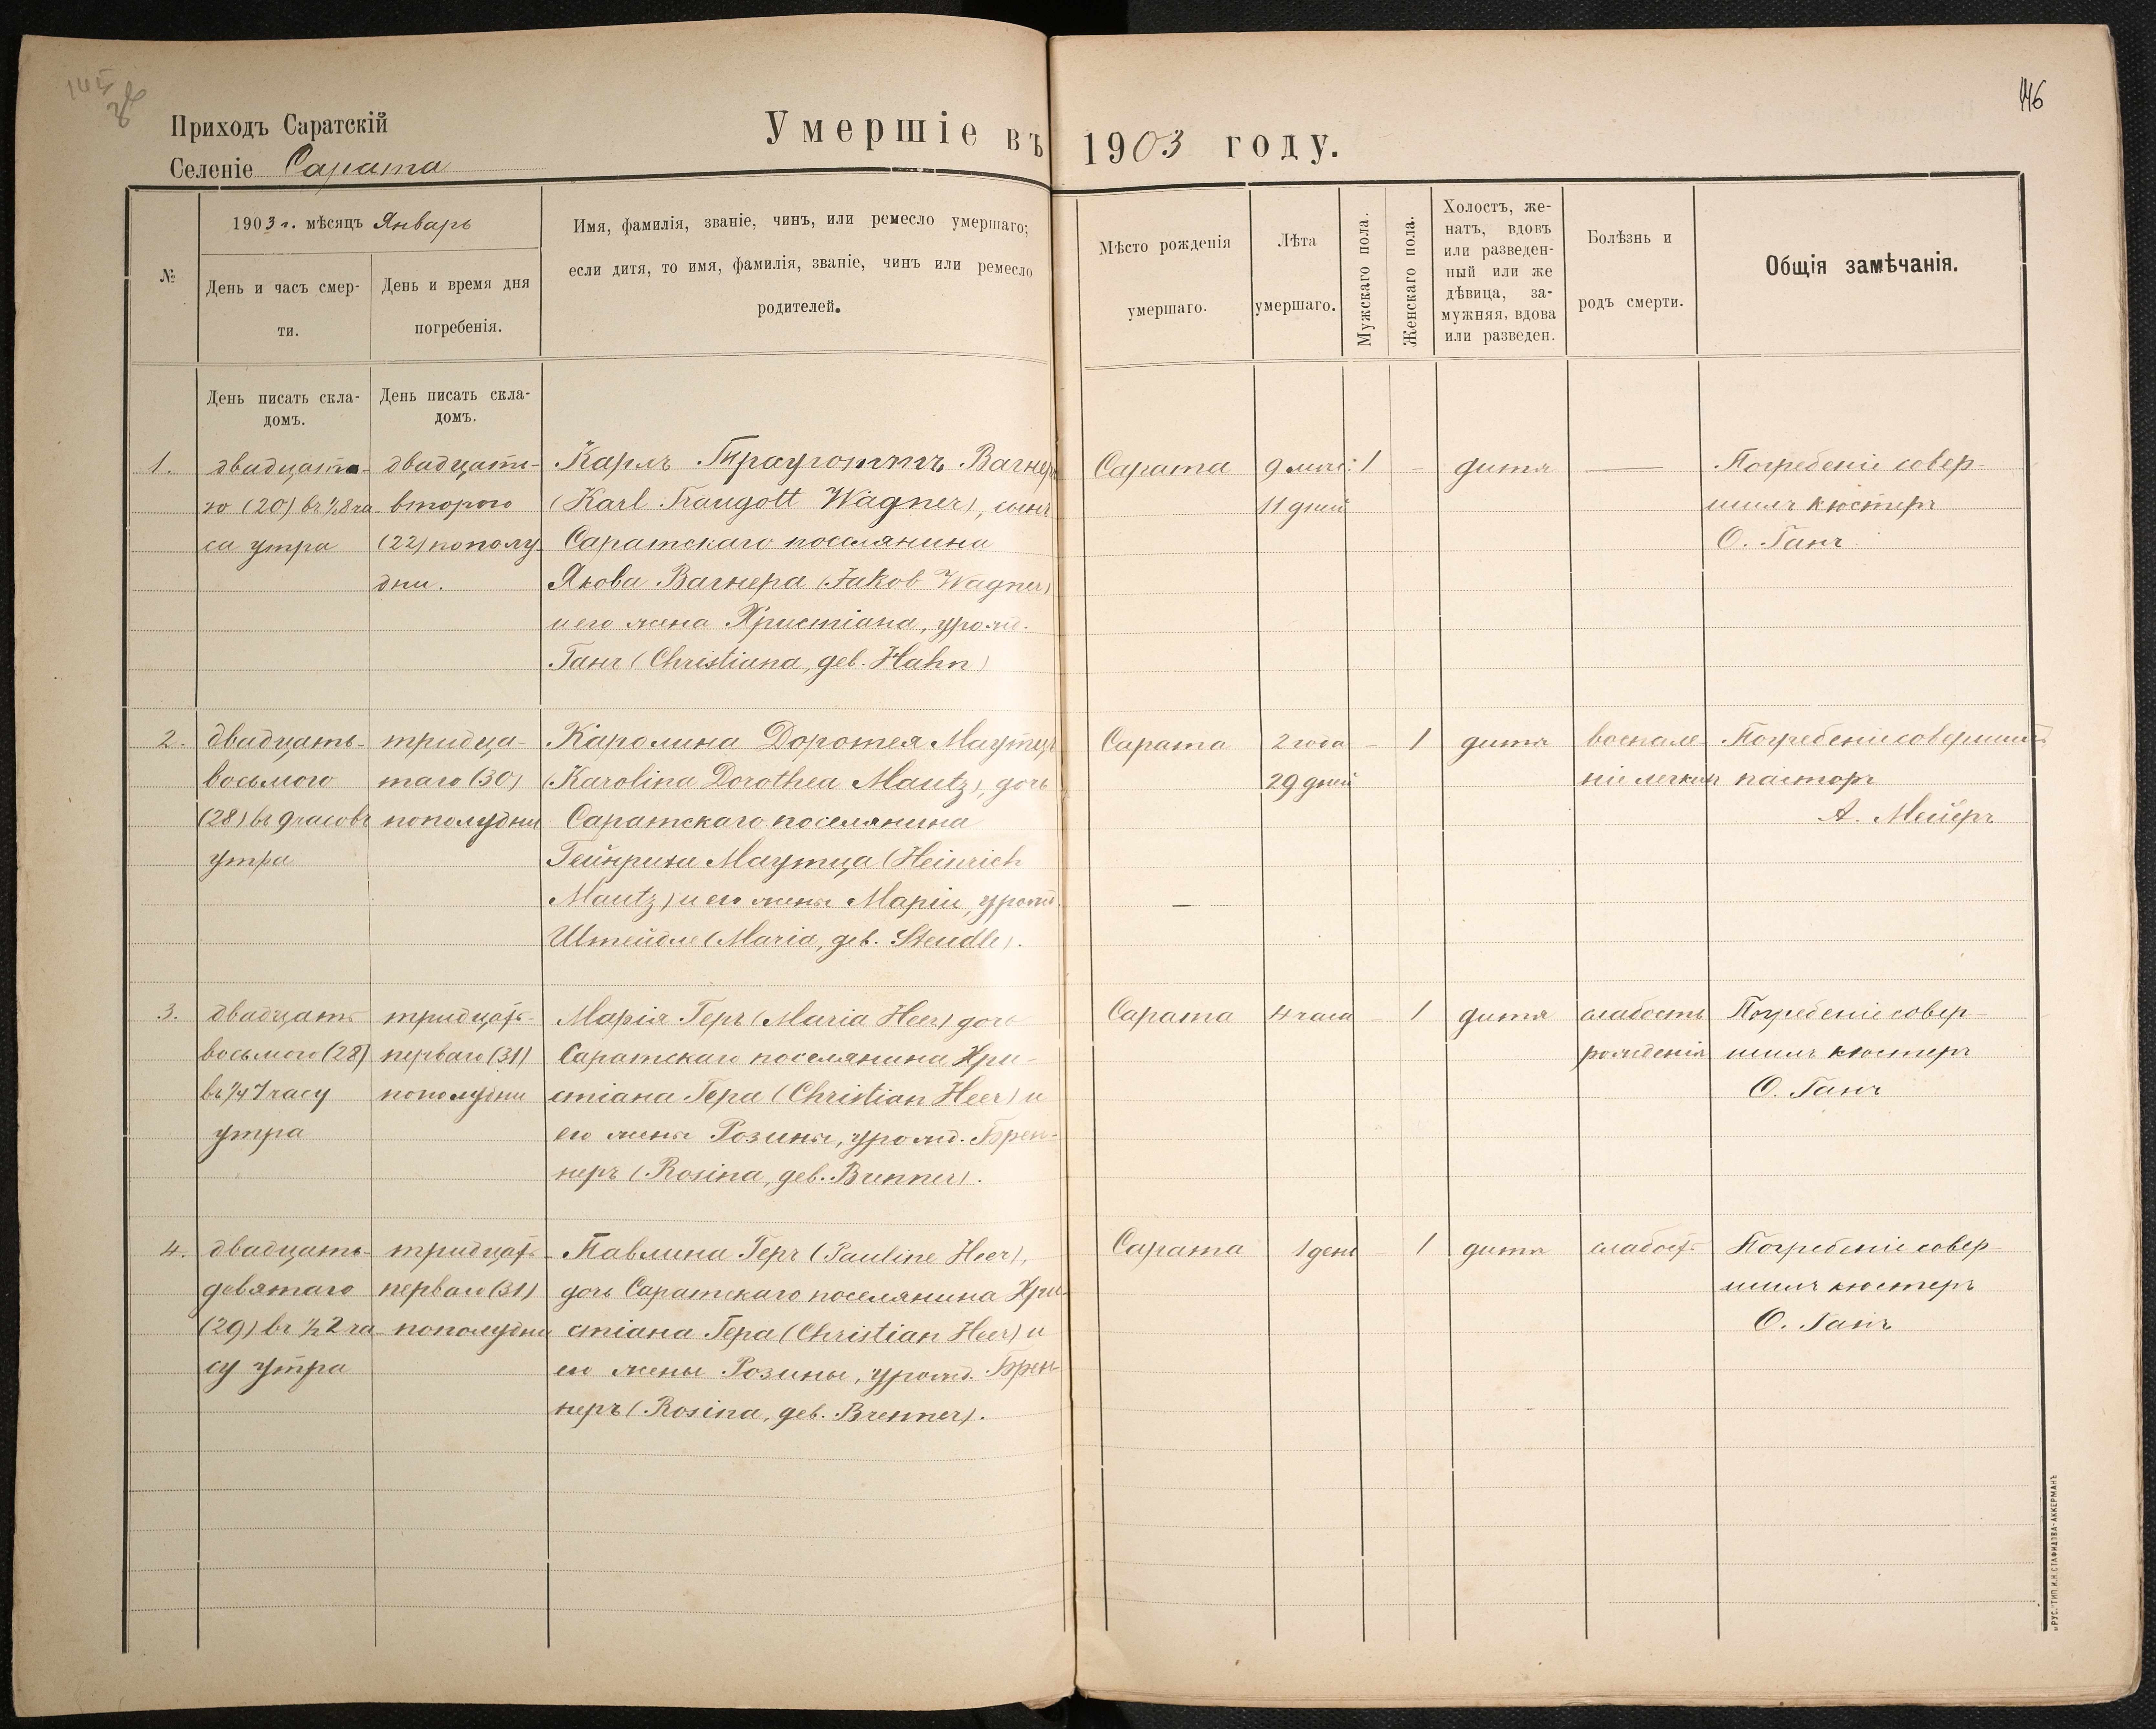 146
Приходъ Саратскій
Селеніе Сарата
Умершіе въ 1903 году.
№
1903 г. мѣсяцъ Январь
День и часъ смер-
ти.
День и время дня
погребенія.
Имя, фамилія, званіе, чинъ, или ремесло умершаго;
если дитя, то имя, фамилія, званіе, чинъ или ремесло
родителей.
Мѣсто рожденія
умершаго.
Лѣта
умершаго.
Мужскаго пола.
Женскаго пола.
Холостъ, же-
натъ, вдовъ
или разведен-
ный или же
дѣвица, за-
мужняя, вдова
или разведен.
Болѣзнь и
родъ смерти.
Общія замѣчанія.
День писать скла-
домъ.
День писать скла-
домъ.
1.
двадцата-
го (20) въ ½8 ча
са утра
двадцать-
второго
(22) пополу-
дни.
Карлъ Трауготтъ Вагнеръ
(Karl Traugott Wagner), сынъ
Саратскаго поселянина
Якова Вагнера (Jakob Wagner)
и его жена Христіана, урожд.
Ганъ (Christiana, geb. Hahn)
Сарата
9 мѣс:
11 дней
1
-
дитя
—
Погребеніе совер-
шилъ кюстеръ
О. Ганъ
2.
двадцать-
восьмого
(28) въ 9 часовъ
утра
тридца-
таго (30)
пополудни
Каролина Доротея Маутцъ
(Karolina Dorothea Mautz), дочь
Саратскаго поселянина
Гейнриха Маутца (Heinrich
Mautz) и его жены Маріи, урожд.
Штейдле (Maria, geb. Steudle).
Сарата
—
2 года
29 дней
-
1
дитя
воспале-
ніе легкихъ
Погребеніе совершилъ
пасторъ
А. Мейеръ
3.
двадцать
восьмого (28)
въ ¼ 7 часу
утра
тридцать-
перваго (31)
пополудни
Марія Геръ (Maria Heer) дочь
Саратскаго поселянина Хри-
стіана Гера (Christian Heer) и
его жены Розины, урожд. Брен-
неръ (Rosina, geb. Brenner).
Сарата
4 часа
-
1
дитя
слабость
рожденія
Погребеніе совер-
шилъ кюстеръ
О. Ганъ
4.
двадцать-
девятаго
(29) въ ½ 2 ча
су утра
тридцать-
перваго (31)
пополудни
Павлина Геръ (Pauline Heer),
дочь Саратскаго поселянина Хри-
стіана Гера (Christian Heer) и
его жены Розины, урожд. Брен-
неръ (Rosina, geb. Brenner).
Сарата
1 день
1
дитя
слабость
Погребеніе совер-
шилъ кюстеръ
О. Ганъ